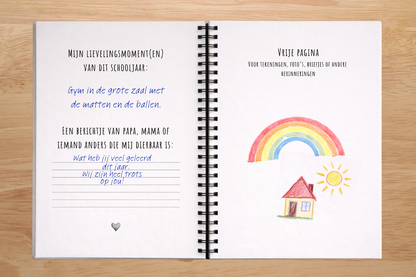 Mijn lievelingsmoment(en)
van dit schooljaar:
Gym in de grote zaal met
de matten en de ballen.
Een berichtje van papa, mama of
iemand anders die mij dierbaar is:
Wat heb jij veel geleerd
dit jaar.
Wij zijn heel trots
op jou!
Vrije pagina
Voor tekeningen, foto's, briefjes of andere
herinneringen